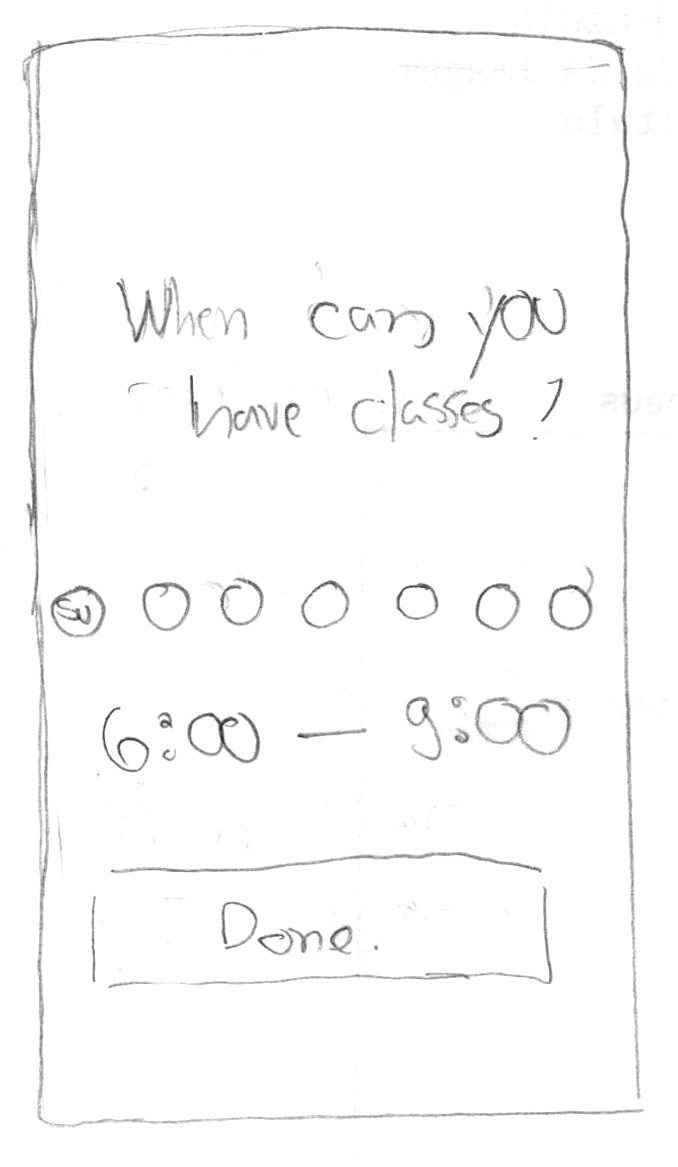 When can you
have classes?
Su
6:00 — 9:00
Done.